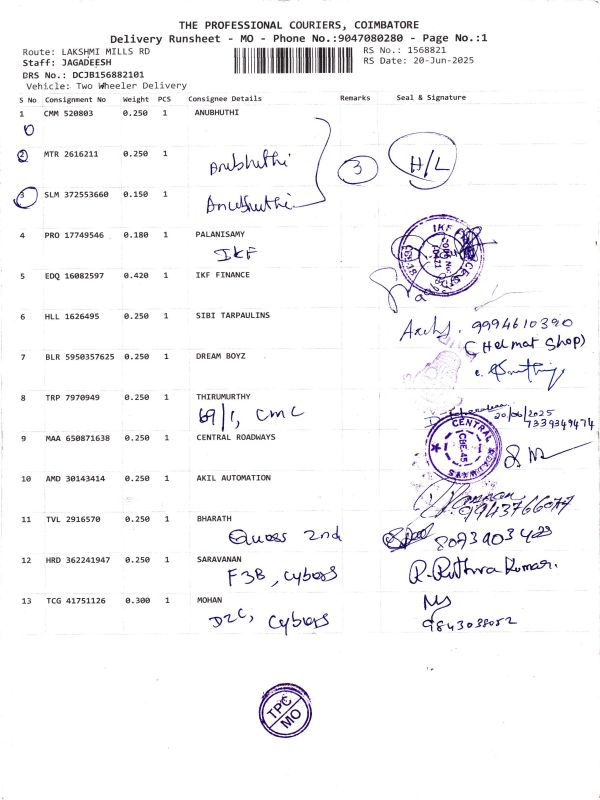 THE PROFESSIONAL COURIERS, COIMBATORE
Delivery Runsheet - MO - Phone No.:9047080280 - Page No.:1
Route: LAKSHMI MILLS RD
RS No.: 1568821
Staff: JAGADEESH
RS Date: 20-Jun-2025
DRS No.: DCJB156882101
Vehicle: Two Wheeler Delivery
S No Consignment No Weight PCS Consignee Details Remarks Seal & Signature
1 CMM 520803 0.250 1 ANUBHUTHI
2 MTR 2616211 0.250 1 Anubhuthi 3 H/L
3 SLM 372553660 0.150 1 Anubhuthi
4 PRO 17749546 0.180 1 PALANISAMY
IKF
5 EDQ 16082597 0.420 1 IKF FINANCE
6 HLL 1626495 0.250 1 SIBI TARPAULINS
9994610390
(Helmat Shop)
7 BLR 5950357625 0.250 1 DREAM BOYZ
8 TRP 7970949 0.250 1 THIRUMURTHY
69/1, CMC
20/06/2025
7339349474
9 MAA 650871638 0.250 1 CENTRAL ROADWAYS
CENTRAL ROADWAYS
CBE-45
10 AMD 30143414 0.250 1 AKIL AUTOMATION
9943766077
11 TVL 2916570 0.250 1 BHARATH
2nd
12 HRD 362241947 0.250 1 SARAVANAN
F3B, Cybers
R. Ruthra Kumar.
13 TCG 41751126 0.300 1 MOHAN
D2C, Cybers
9843038052
TPC
MO